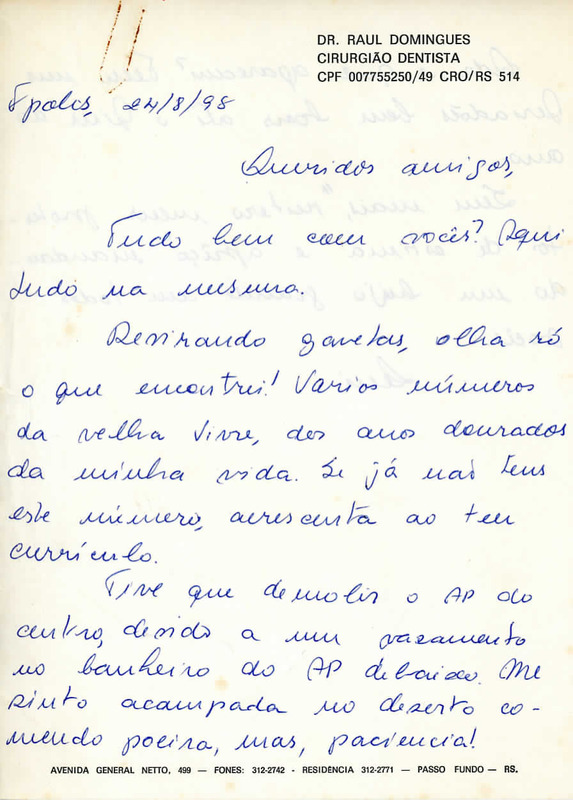 DR. RAUL DOMINGUES
CIRURGIÃO DENTISTA
CPF 007755250/49 CRO/RS 514
Fpolis, 24/8/98
Queridos amigos,
Tudo bem com vocês? Aqui
tudo na mesma.
Revirando gavetas, olha só
o que encontrei! Varios números
da velha Vivre, dos anos dourados
da minha vida. Se já não tens
este número, acrescenta ao teu
currículo.
Tive que demolir o AP do
centro, devido a um vazamento
no banheiro do AP debaixo. Me
sinto acampada no deserto co-
mendo poeira, mas, paciencia!
AVENIDA GENERAL NETTO, 499 — FONES: 312-2742 - RESIDÊNCIA 312-2771 — PASSO FUNDO — RS.